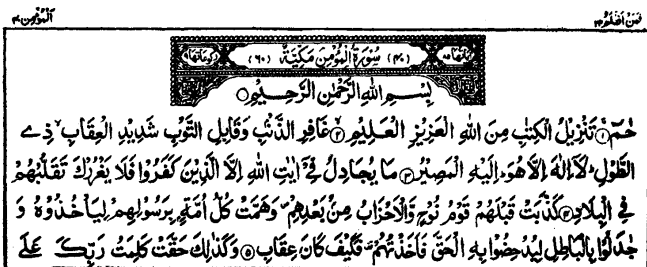 فَمَنْ اَظْلَمُ ٢٤
اَلْمُؤْمِن ٤٠
اٰيَاتُهَا ٨٥ (٤٠) سُوْرَةُ الْمُؤْمِنِ مَكِّيَّةٌ (٦٠) رُكُوْعَاتُهَا ٩
بِسْمِ اللّٰهِ الرَّحْمٰنِ الرَّحِيْمِ
حٰمٓ ۝١ تَنْزِيْلُ الْكِتٰبِ مِنَ اللّٰهِ الْعَزِيْزِ الْعَلِيْمِ ۝٢ غَافِرِ الذَّنْۢبِ وَقَابِلِ التَّوْبِ شَدِيْدِ الْعِقَابِ ذِي
الطَّوْلِ لَاۤ اِلٰهَ اِلَّا هُوَ اِلَيْهِ الْمَصِيْرُ ۝٣ مَا يُجَادِلُ فِيْۤ اٰيٰتِ اللّٰهِ اِلَّا الَّذِيْنَ كَفَرُوْا فَلَا يَغْرُرْكَ تَقَلُّبُهُمْ
فِي الْبِلَادِ ۝٤ كَذَّبَتْ قَبْلَهُمْ قَوْمُ نُوْحٍ وَّالْاَحْزَابُ مِنْۢ بَعْدِهِمْ وَهَمَّتْ كُلُّ اُمَّةٍۭ بِرَسُوْلِهِمْ لِيَاْخُذُوْهُ وَ
جٰدَلُوْا بِالْبَاطِلِ لِيُدْحِضُوْا بِهِ الْحَقَّ فَاَخَذْتُهُمْ فَكَيْفَ كَانَ عِقَابِ ۝٥ وَكَذٰلِكَ حَقَّتْ كَلِمَتُ رَبِّكَ عَلَي